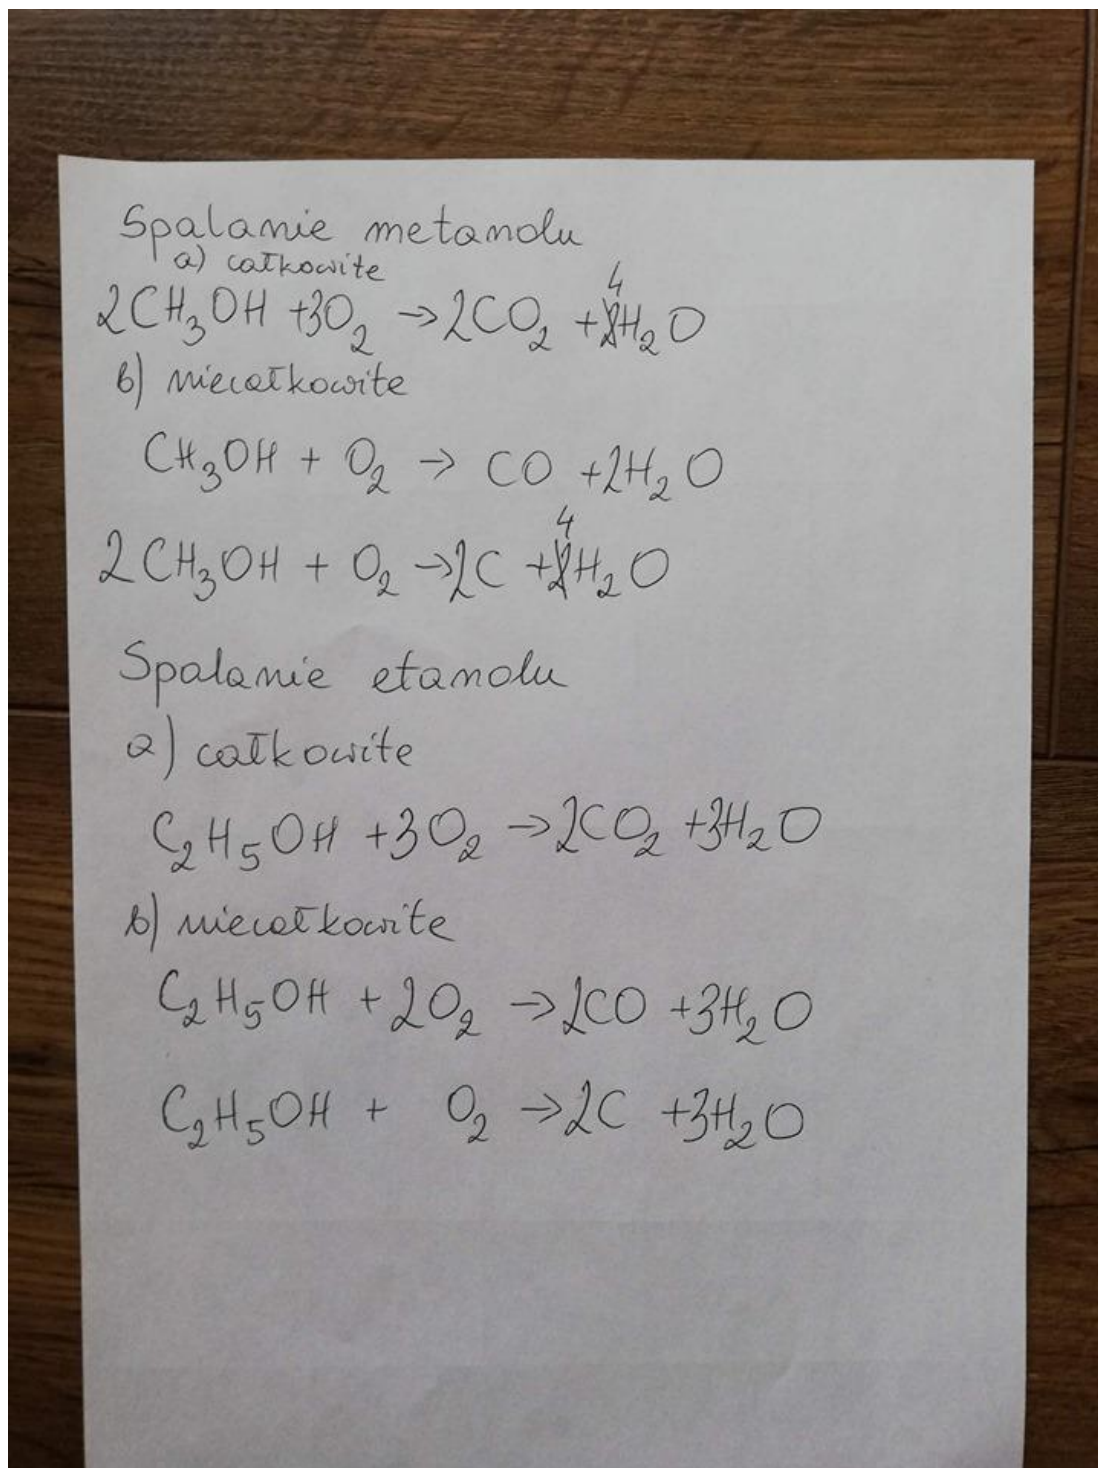 Spalanie metanolu
a) całkowite
2CH₃OH +3O₂ → 2CO₂ + 4H₂O
b) niecałkowite
CH₃OH + O₂ → CO +2H₂O
2CH₃OH + O₂ → 2C + 4H₂O
Spalanie etanolu
a) całkowite
C₂H₅OH +3O₂ → 2CO₂ +3H₂O
b) niecałkowite
C₂H₅OH + 2O₂ → 2CO +3H₂O
C₂H₅OH + O₂ → 2C +3H₂O